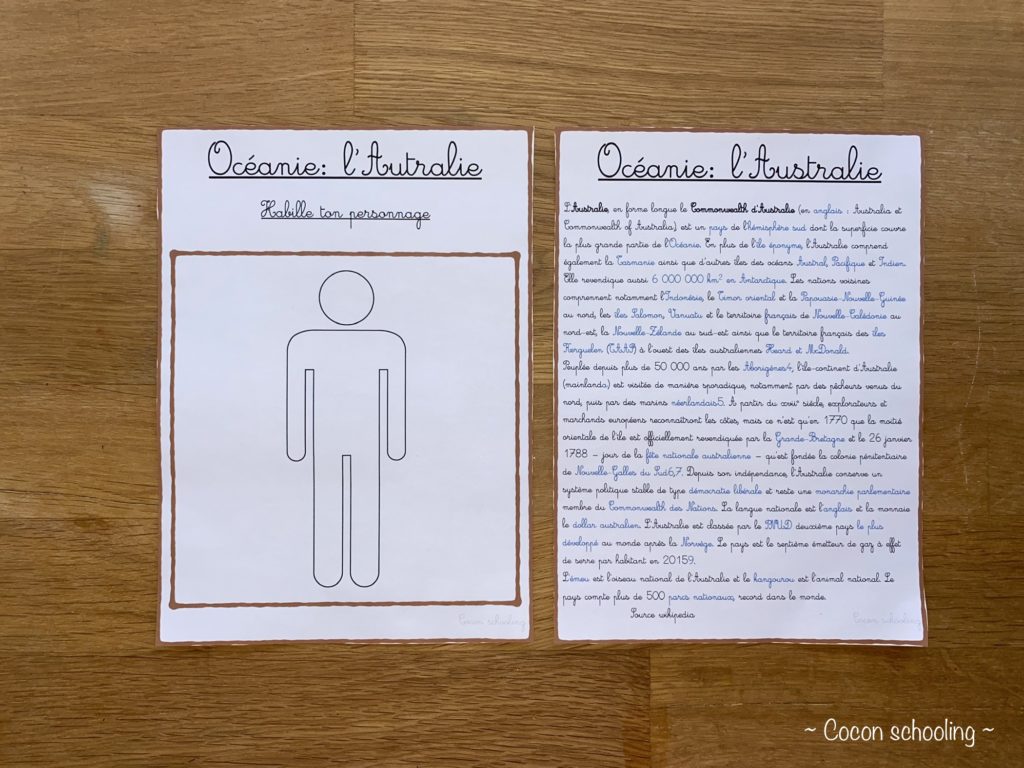 Océanie: l'Autralie
Habille ton personnage
Cocon schooling
Océanie: l'Australie
L'Australie, en forme longue le Commonwealth d'Australie (en anglais : Australia et
Commonwealth of Australia) est un pays de l'hémisphère sud dont la superficie couvre
la plus grande partie de l'Océanie. En plus de l'île éponyme, l'Australie comprend
également la Tasmanie ainsi que d'autres îles des océans Austral, Pacifique et Indien.
Elle revendique aussi 6 000 000 km² en Antarctique. Les nations voisines
comprennent notamment l'Indonésie, le Timor oriental et la Papouasie-Nouvelle-Guinée
au nord, les îles Salomon, Vanuatu et le territoire français de Nouvelle-Calédonie au
nord-est, la Nouvelle-Zélande au sud-est ainsi que le territoire français des îles
Kerguelen (TAAF) à l'ouest des îles australiennes Heard et McDonald.
Peuplée depuis plus de 50 000 ans par les Aborigènes4, l'île-continent d'Australie
(mainlanda) est visitée de manière sporadique, notamment par des pêcheurs venus du
nord, puis par des marins néerlandais5. À partir du xviiᵉ siècle, explorateurs et
marchands européens reconnaîtront les côtes, mais ce n'est qu'en 1770 que la moitié
orientale de l'île est officiellement revendiquée par la Grande-Bretagne et le 26 janvier
1788 – jour de la fête nationale australienne – qu'est fondée la colonie pénitentiaire
de Nouvelle-Galles du Sud6,7. Depuis son indépendance, l'Australie conserve un
système politique stable de type démocratie libérale et reste une monarchie parlementaire
membre du Commonwealth des Nations. La langue nationale est l'anglais et la monnaie
le dollar australien. L'Australie est classée par le PNUD deuxième pays le plus
développé au monde après la Norvège. Le pays est le septième émetteur de gaz à effet
de serre par habitant en 20159.
L'émeu est l'oiseau national de l'Australie et le kangourou est l'animal national. Le
pays compte plus de 500 parcs nationaux, record dans le monde.
Source wikipedia
Cocon schooling
~ Cocon schooling ~